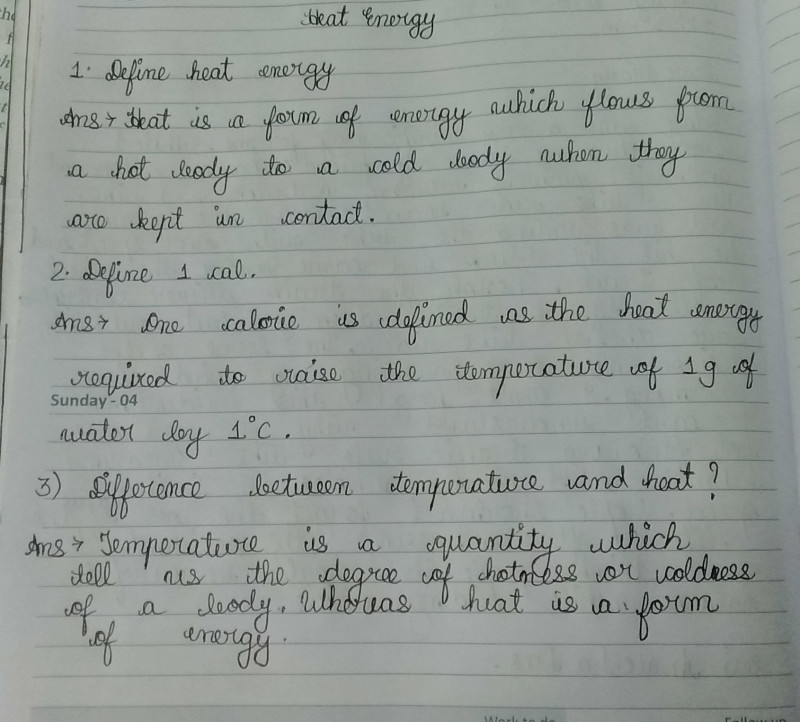 Heat Energy
1. Define heat energy
Ans → Heat is a form of energy which flows from
a hot body to a cold body when they
are kept in contact.
2. Define 1 cal.
Ans → One calorie is defined as the heat energy
required to raise the temperature of 1g of
Sunday - 04
water by 1°C.
3) Difference between temperature and heat?
Ans → Temperature is a quantity which
tell us the degree of hotness or coldness
of a body. Whereas heat is a form
of energy.